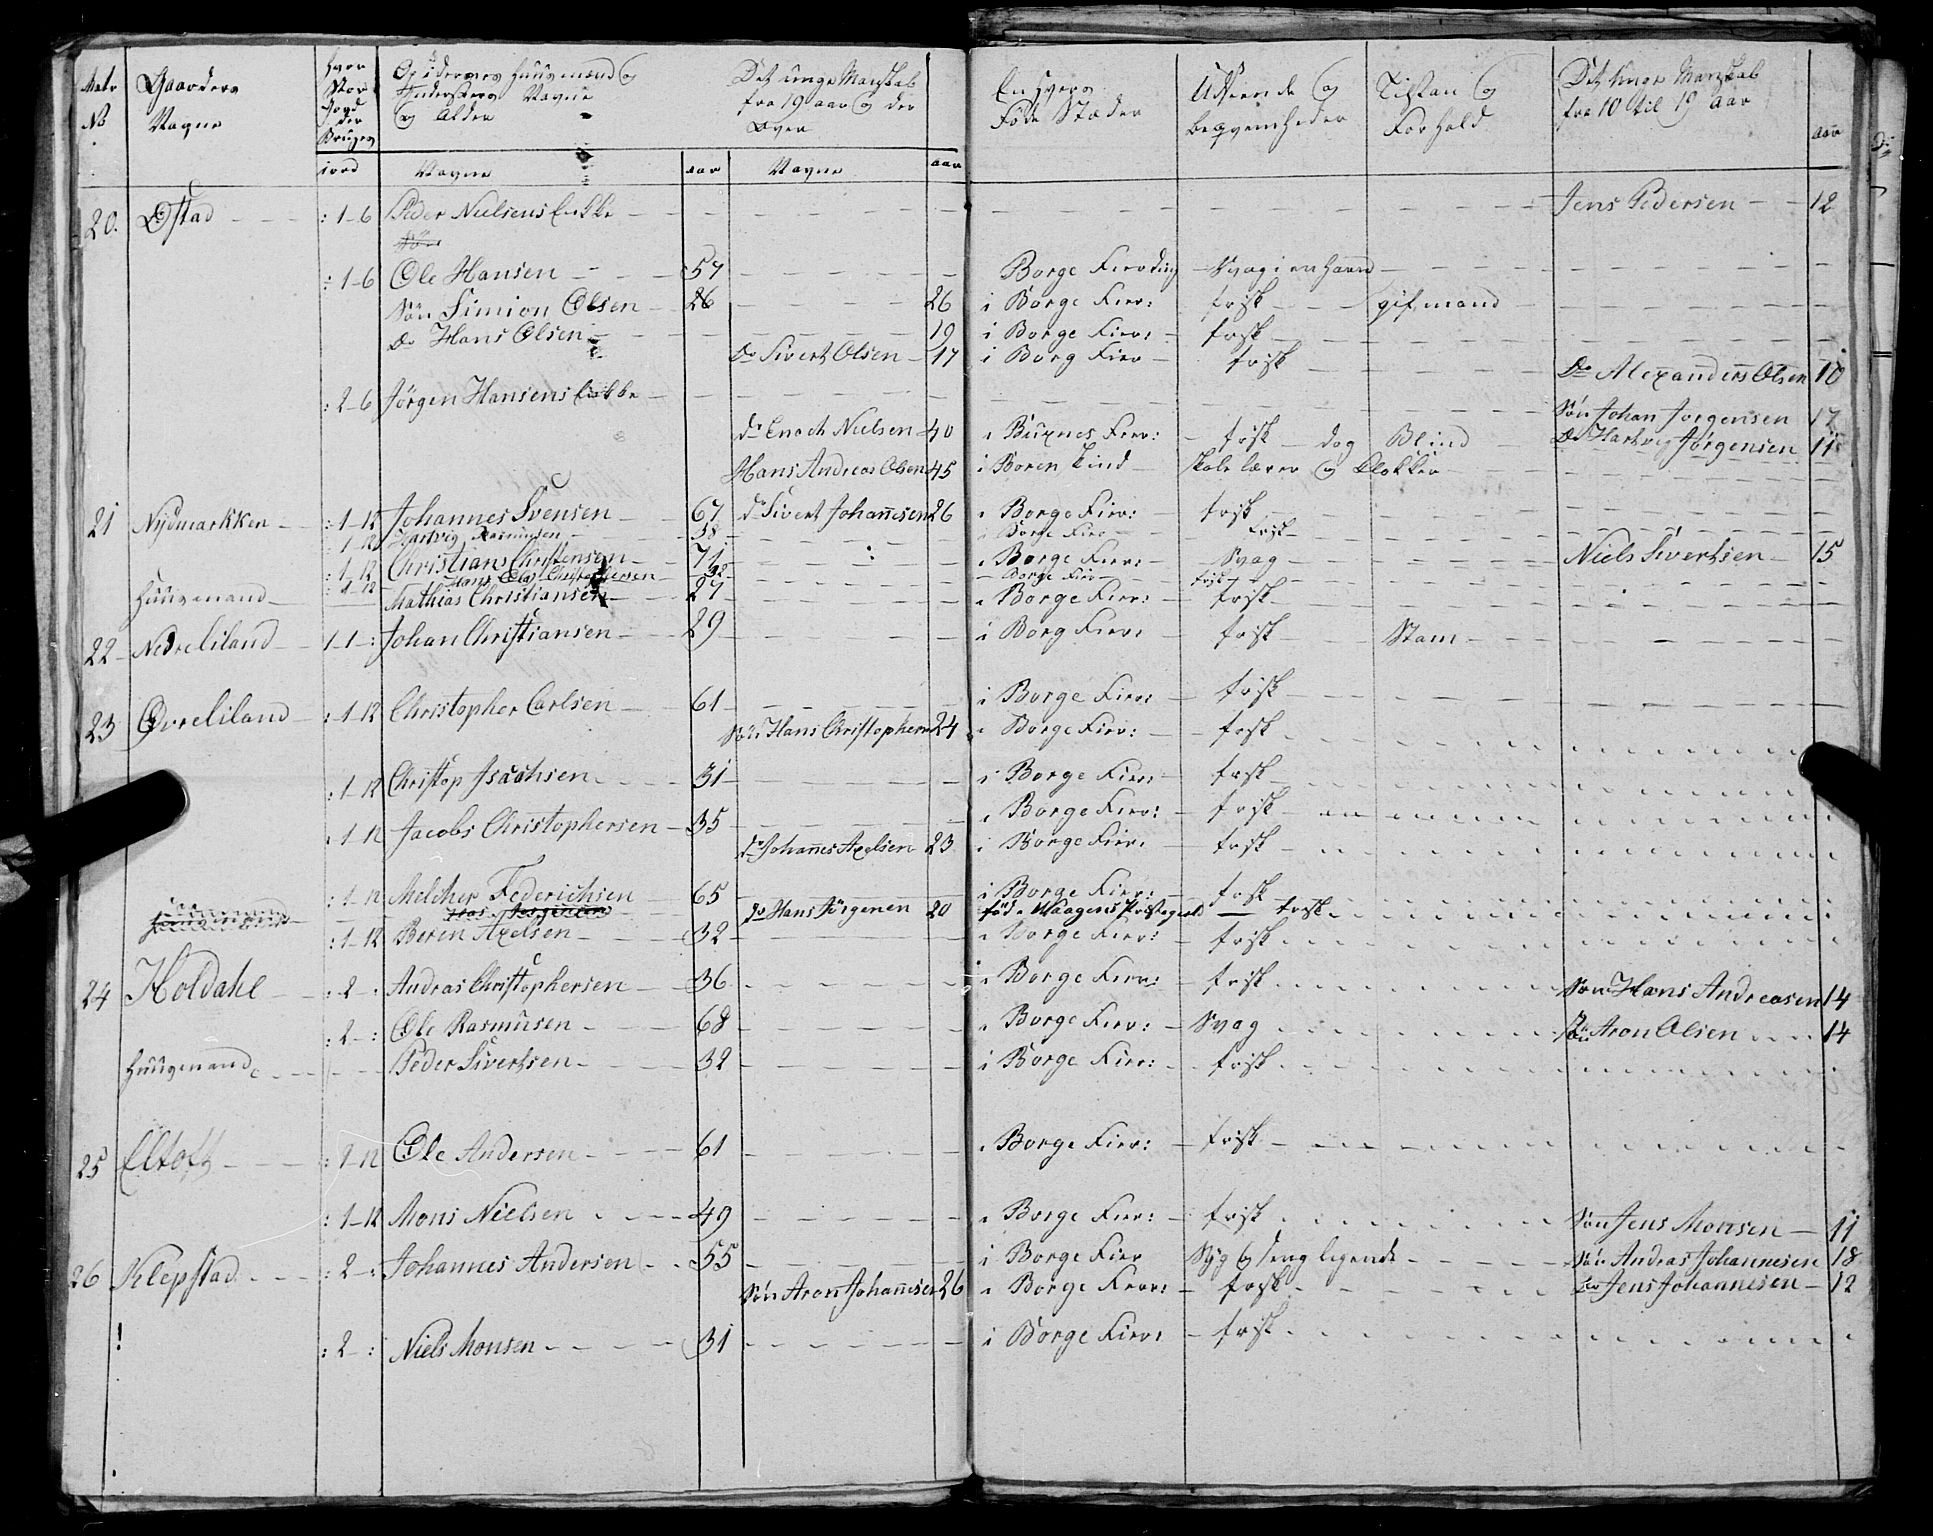 Matr No Gaarders Navne Hvor Stor Jord der Bruges Opsidernes Huusmænd og Navne og Alder Det unge Mandskab fra 19 aar og der Over Enhvers Føde Stæder Udseende og beqvemheder Tilstan og Forhold Det Unge Manskab fra 10 til 19 aar aar
Navne aar Navne aar
20. Østad : 1-6 Peder Nielsens Enkke Jens Pedersen 12
: 1-6 Ole Hansen 57 Borge Fierding Svag i en Haand
Søn Simion Olsen 26 26 i Borge Fier: frisk gift mand
Do Hans Olsen 19 i Borge Fier: frisk
Do Sivert Olsen 17 i Borg Fier frisk
Do Alexanders Olsen 10
: 2-6 Jörgen Hansens Enkke
Sön Johan Jorgensen 17
do Enoch Nielsen 40 i Buxnes Fier: frisk dog Blind Do Hartvig Jörgensen 11
Hans Andreas Olsen 45 i Skole lærer og Klokker
21 Nÿdmarkken : 1-12 Johannes Svensen 67 do Sivert Johannesen 26 i Borge Fier: frisk
1-12 Hartvig Rasmusen 38 i Borge Fier frisk
: 1-12 Christian Christensen 71 i Borge Fier: Svag Niels Sivertsen 15
: 1-12 Hans Olai Christophersen 32 Borge Fier frisk
Huusmand Mathias Christiansen 27 i Borge Fier: frisk
22 Nedreliland 1-1-: Johan Christiansen 29 i Borg Fier: frisk Stam
23 Øvreliland : 1-12 Christopher Carlsen 61 i Borge Fier: frisk
Sön Hans Christophern 24 i Borge Fier: frisk
: 1-12 Christop Isachsen 31 i Borge Fier: frisk
: 1-12 Jacobs Christophersen 35 i Borge Fier: frisk
do Johannes Axelsen 23 i Borge Fier: frisk
: 1-12 Melcher Federichsen 65 i Borge Fier: frisk
do Hans Jörgenen 20 föd i Waagens Præstegield frisk
: 1-12 Beren Axelsen 32 i Borge Fier: frisk
24 Holdahl : 2-: Andras Christophersen 36 i Borge Fier: frisk Søn Hans Andreasen 14
: 2-: Ole Rasmusen 68 i Borge Fier: Svag Søn Aron Olsen 14
Huusmand Peder Sivertsen 32 i Borge Fier: frisk
25 Eltoft : 1-12 Ole Andersen 61 i Borge Fier: frisk
: 1-12 Mons Nielsen 49 i Borge Fier: frisk Søn Jens Monsen 11
26 Klepstad : 2-: Johannes Andersen 55 i Borge Fier Syg og seng ligende Sön Andras Johannesen 18
Sön Aron Johannesen 26 i Borge Fier: frisk Do Jens Johannesen 12
: 2-: Niels Monsen 31 i Borge Fier: frisk